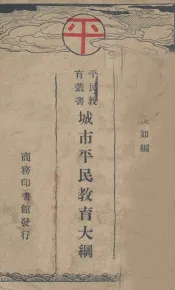 平
平民教
育叢書
城市平民教育大綱
商務印書館發行